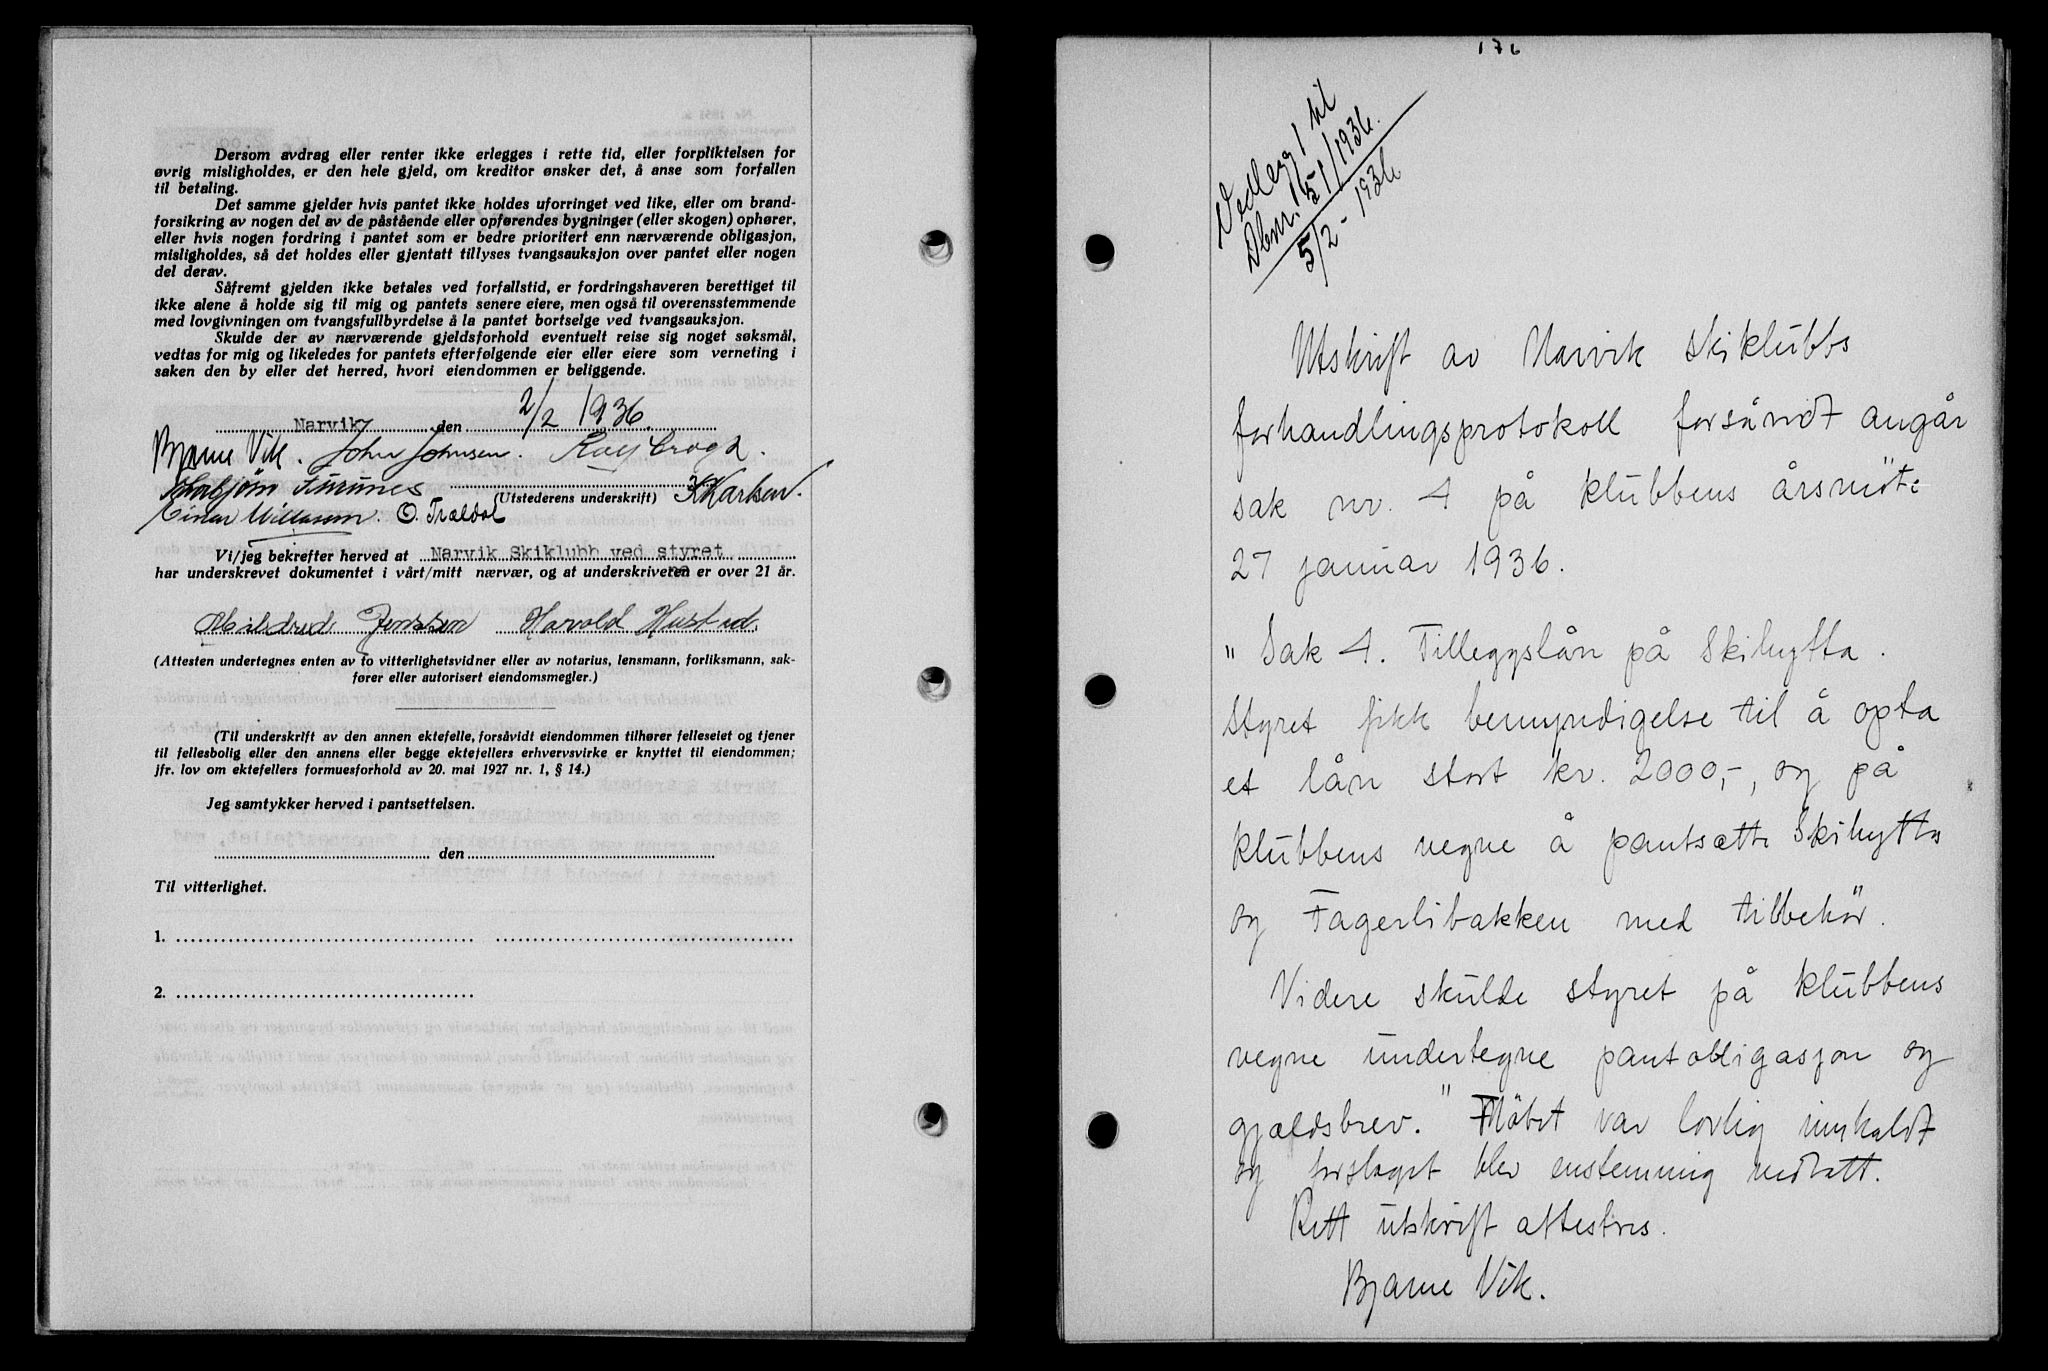 Dersom avdrag eller renter ikke erlegges i rette tid, eller forpliktelsen for
øvrig misligholdes, er den hele gjeld, om kreditor ønsker det, å anse som forfallen
til betaling.
Det samme gjelder hvis pantet ikke holdes uforringet ved like, eller om brand-
forsikring av nogen del av de påstående eller opførendes bygninger (eller skogen) ophører,
eller hvis nogen fordring i pantet som er bedre prioritert enn nærværende obligasjon,
misligholdes, så det holdes eller gjentatt tillyses tvangsauksjon over pantet eller nogen
del derav.
Såfremt gjelden ikke betales ved forfallstid, er fordringshaveren berettiget til
ikke alene å holde sig til mig og pantets senere eiere, men også til overensstemmende
med lovgivningen om tvangsfullbyrdelse å la pantet bortselge ved tvangsauksjon.
Skulde der av nærværende gjeldsforhold eventuelt reise sig noget søksmål,
vedtas for mig og likeledes for pantets efterfølgende eier eller eiere som verneting i
saken den by eller det herred, hvori eiendommen er beliggende.
Narvik den 2/2 1936.
Bjarne Vik. John Johnsen.
Thorbjörn Furunes (Utstederens underskrift) K Karlsen.
Einar Willassen. O. Trældal
Vi/jeg bekrefter herved at Narvik Skiklubb ved styret
har underskrevet dokumentet i vårt/mitt nærvær, og at underskriveren er over 21 år.
Mildred Jenssen Harald Hustad.
(Attesten undertegnes enten av to vitterlighetsvidner eller av notarius, lensmann, forliksmann, sak-
fører eller autorisert eiendomsmegler.)
(Til underskrift av den annen ektefelle, forsåvidt eiendommen tilhører felleseiet og tjener
til fellesbolig eller den annens eller begge ektefellers erhvervsvirke er knyttet til eiendommen;
jfr. lov om ektefellers formuesforhold av 20. mai 1927 nr. 1, § 14.)
Jeg samtykker herved i pantsettelsen.
den
Til vitterlighet.
1.
2.
176
Vedlegg 1 til
Dbnr. 151/1936.
5/2 - 1936
Utskrift av Narvik skiklubbs
forhandlingsprotokoll forsåvidt angår
sak nr. 4 på klubbens årsmöte
27 januar 1936.
" Sak 4. Tilleggslån på Skihytta.
Styret fikk bemyndigelse til å opta
et lån stort kr. 2000,-, og på
klubbens vegne å pantsætte Skihytta
og Fagerlibakken med tilbehör.
Videre skulde styret på klubbens
vegne undertegne pantobligasjon og
gjældsbrev. " Möbet var lovlig innkaldt
og forslaget blev enstemmig vedtatt.
Rett utskrift attesteres.
Bjarne Vik.